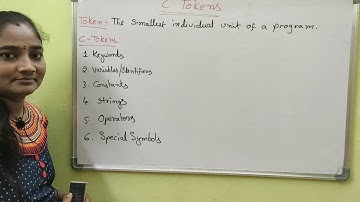 C Tokens
Token:- The smallest individual unit of a program.
C-Tokens:
1. Keywords
2. Variables/Identifiers
3. Constants
4. Strings
5. Operators
6. Special Symbols